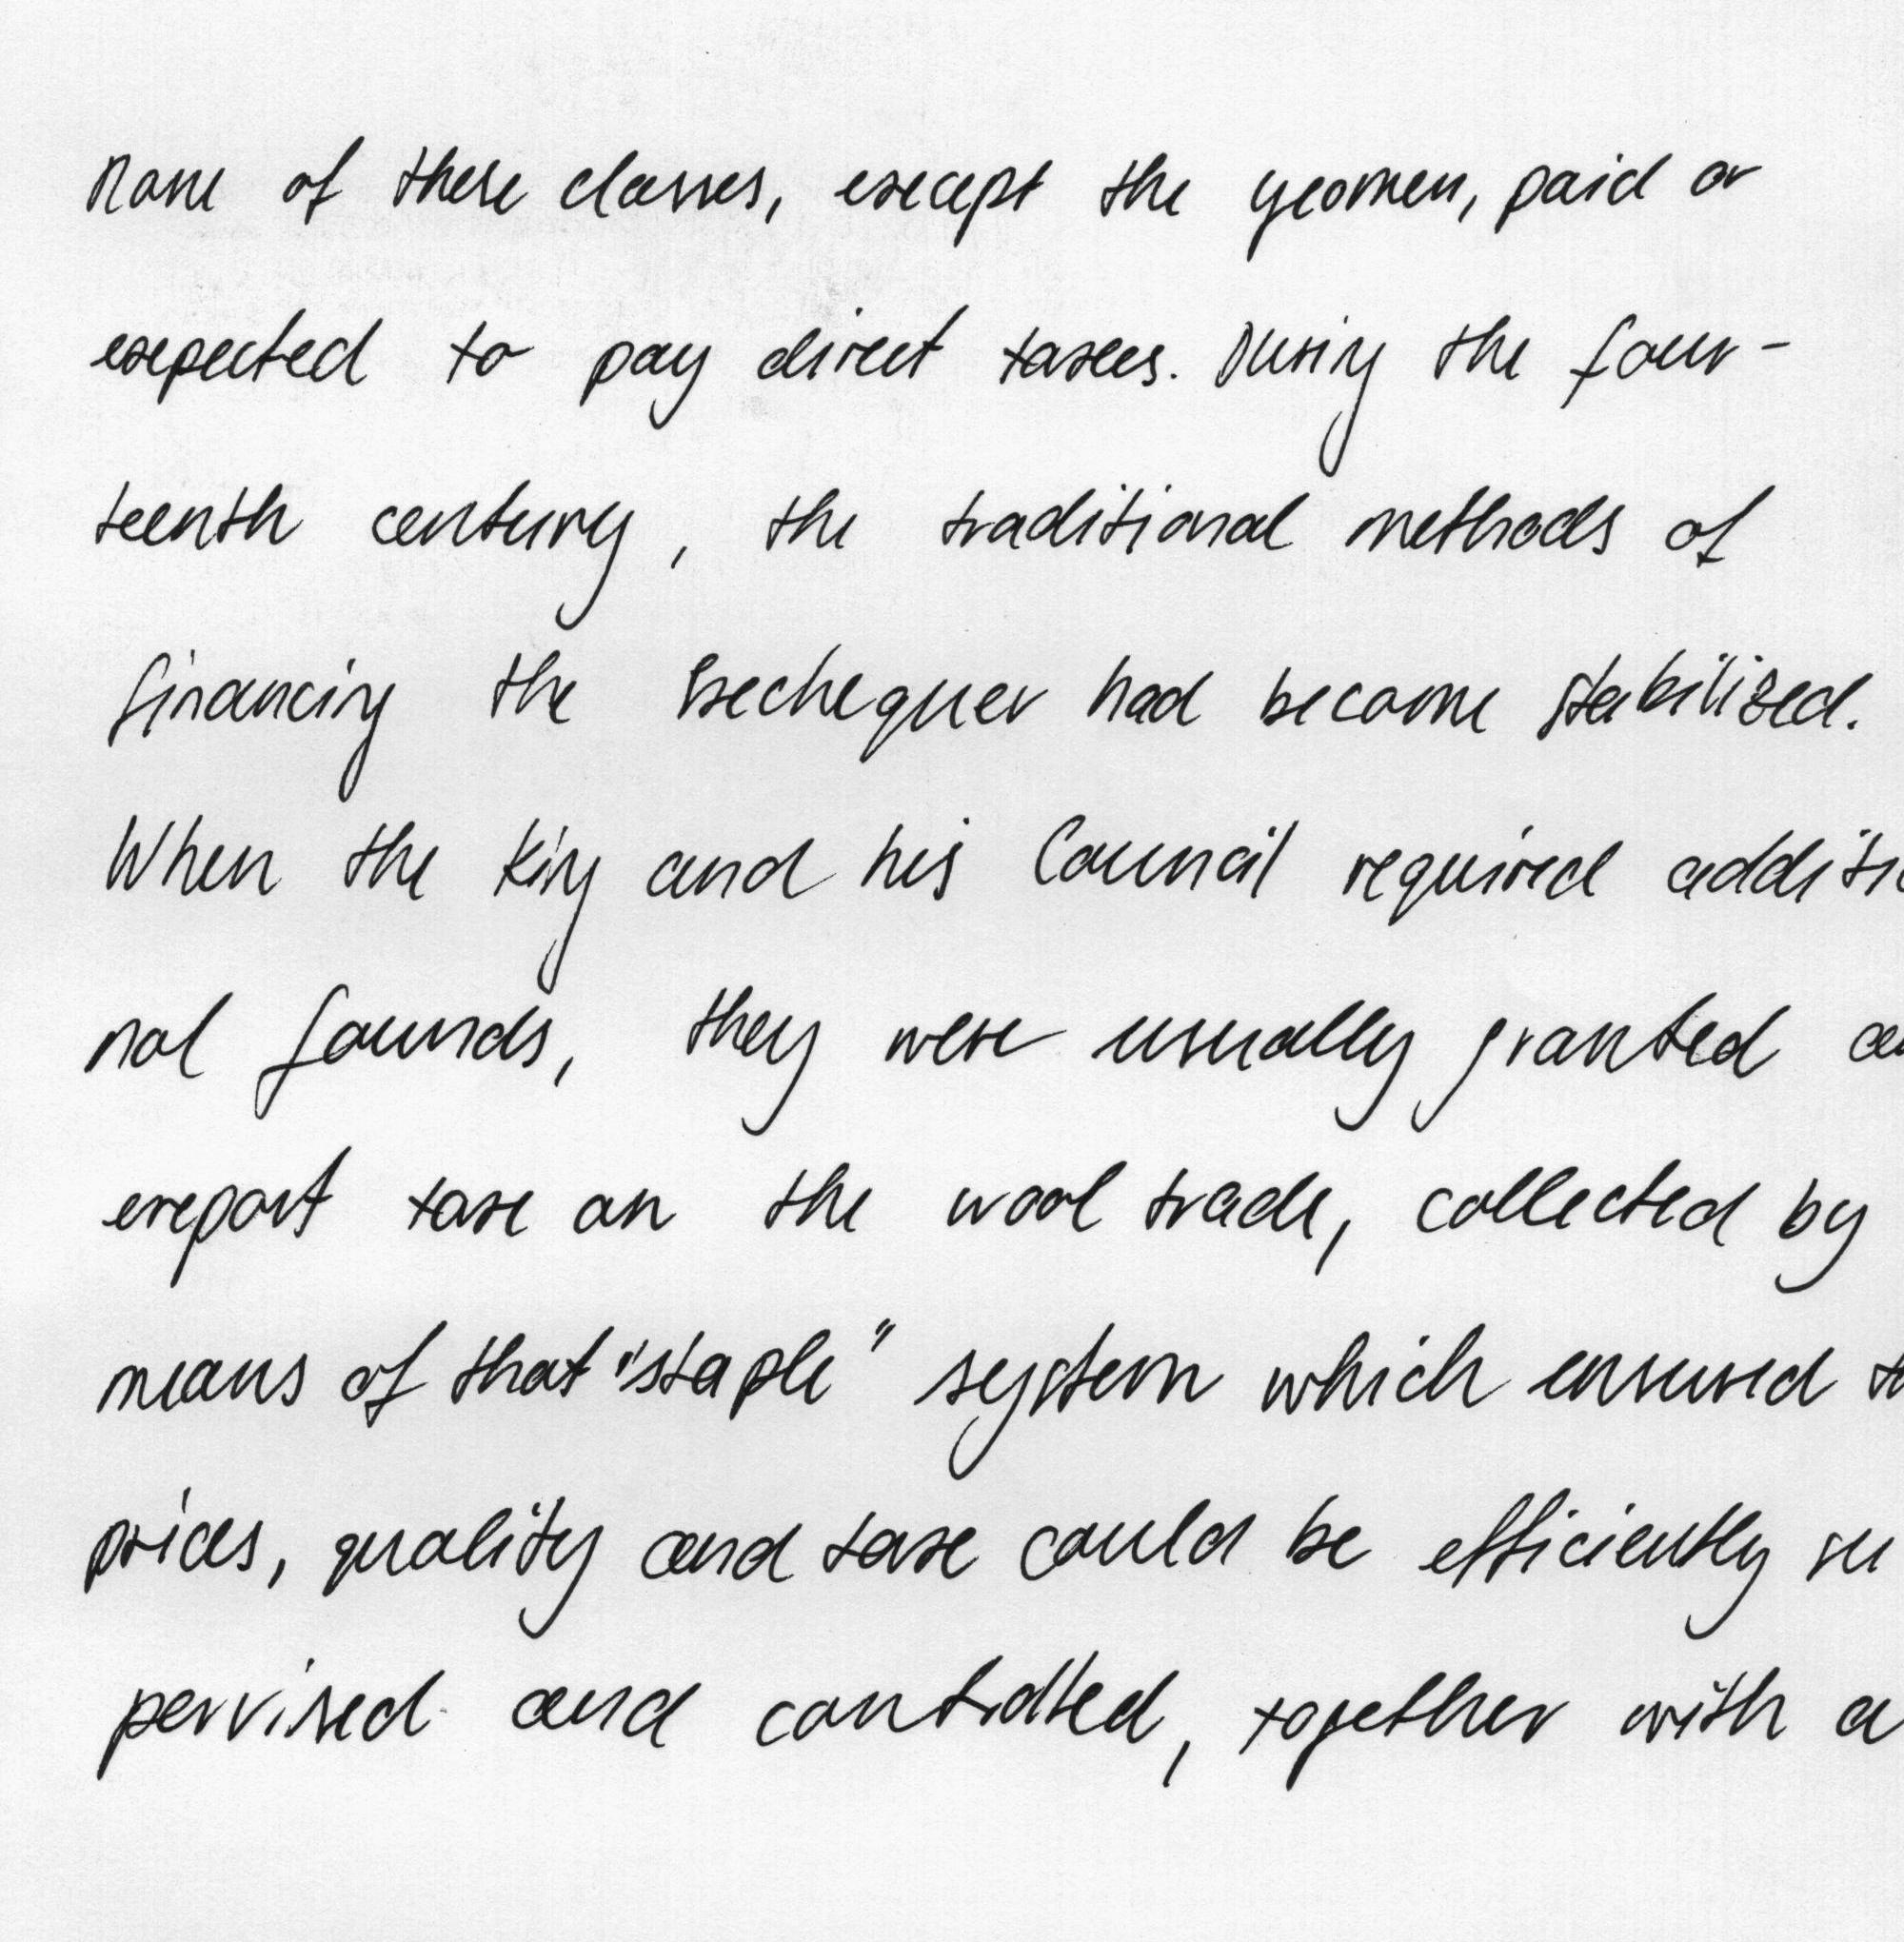 None of these classes, except the yeomen, paid or
expected to pay direct taxes. During the four-
teenth century, the traditional methods of
financing the Exchequer had become stabilized.
When the King and his Council required additio
nal founds, they were usually granted an
export taxe on the wool trade, collected by
means of that "staple" system which ensured
prices, quality and taxe could be efficiently su
pervised and controlled, together with a